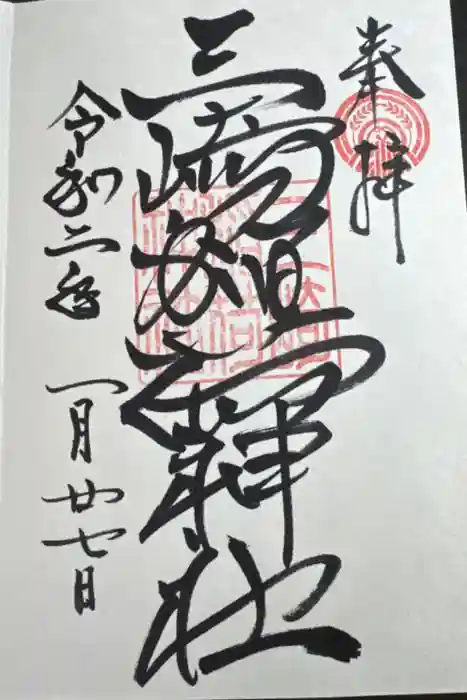 奉拝
三崎稲荷神社
令和二年 一月廿七日